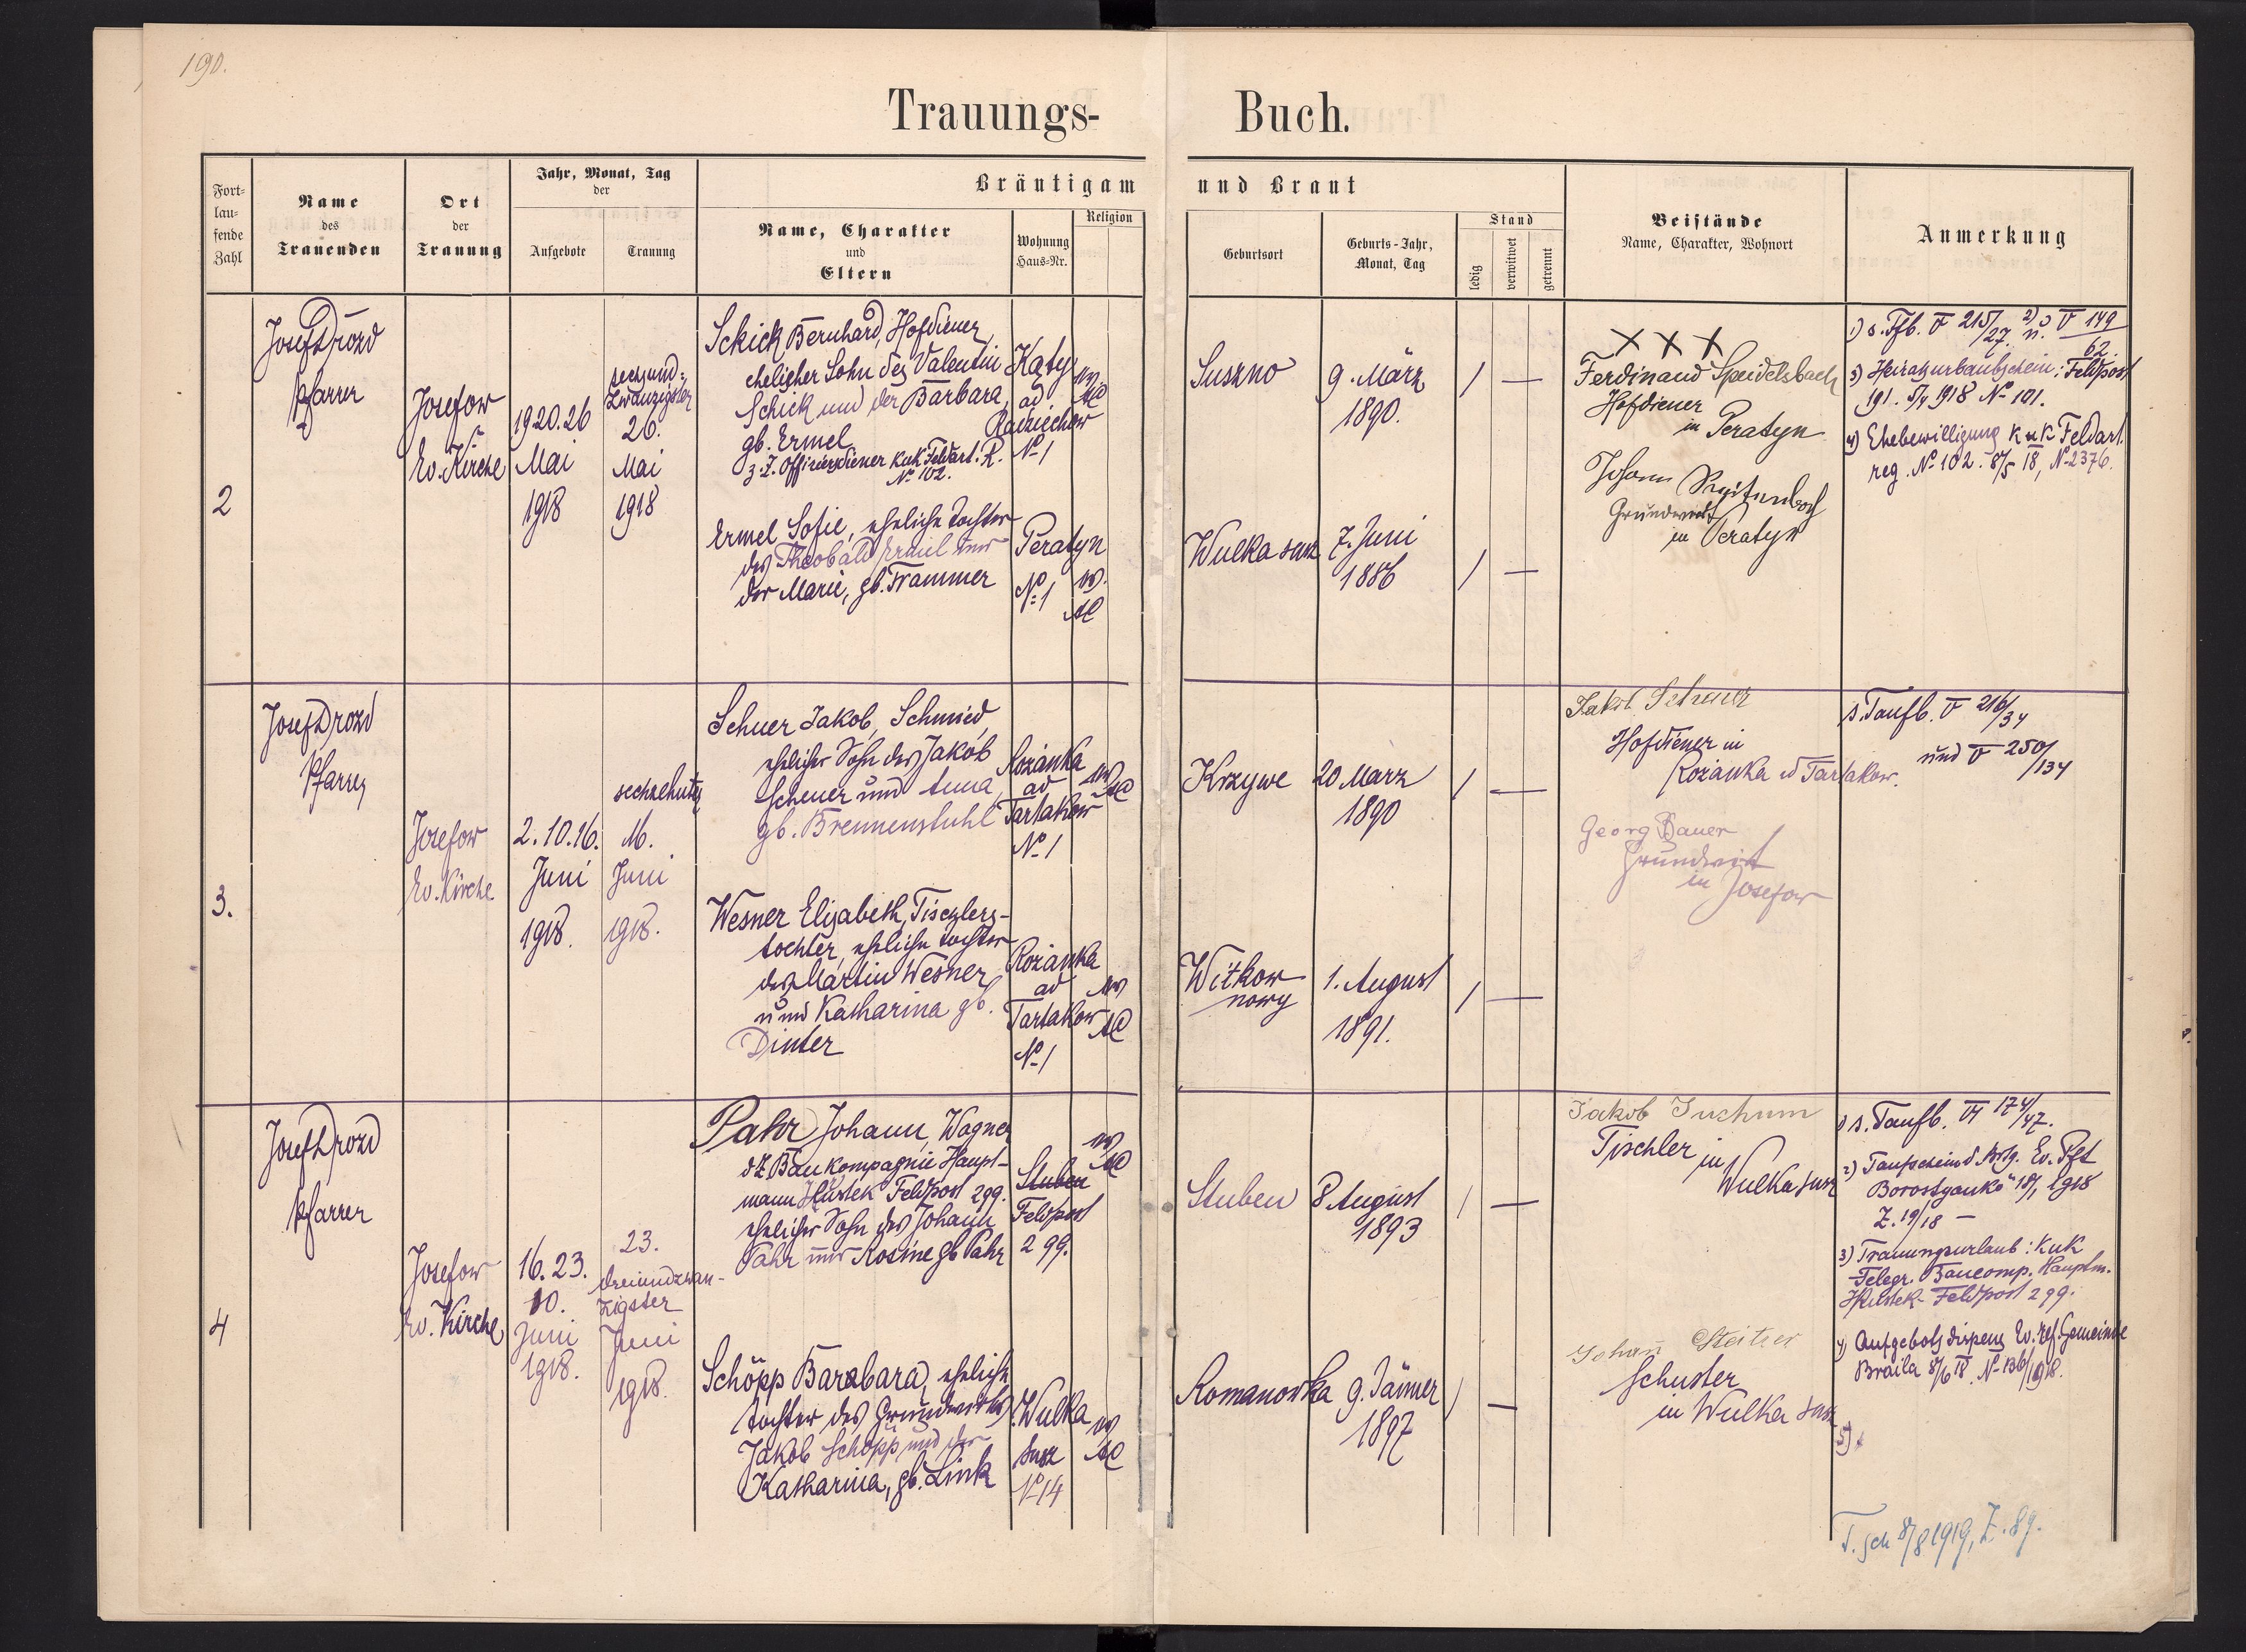 190.
Trauungs- Buch.
Fort-
lau-
fende
Zahl
Name
des
Trauenden
Ort
der
Trauung
Jahr, Monat, Tag
der
Aufgebote
Trauung
Bräutigam und Braut
Name, Charakter
und
Eltern
Wohnung
Haus-Nr.
Religion
Geburtsort
Geburts-Jahr,
Monat, Tag
Stand
ledig
verwitwet
getrennt
Beistände
Name, Charakter, Wohnort
Anmerkung
2
Josef Drozd
Pfarrer
Josefow
Ev. Kirche
19 20. 26
Mai
1918
sechsund-
zwanzigster
26.
Mai
1918
Schick Bernhard, Hofdiener,
ehelicher Sohn des Valentin
Schick und der Barbara,
gb. Ermel
z. Z. Offiziersdiener kuk Feldart. R.
No 102.
Katy
ad
Radziechow
No 1
Suszno
9. März
1890.
/ —
Ermel Sofie, eheliche Tochter
des Theobald Ermel und
der Marie, gb. Trammer
Peratyn
No 1
Wulka susz
7. Juni
1886
/ —
X X X
Ferdinand Speidelsbach
Hofdiener
in Peratyn
Johann
Grundwirt
in Peratyn
1) s. Tfb. V 215/27. n. 2) V 149/62.
3) Heiratsurlaubschein: Feldpost
191. 5/4 1918 No 101.
4) Ehebewilligung KuK Feldart.
reg. No 102. 8/5 18, No 2376.
3.
Josef Drozd
Pfarrer
Josefow
Ev. Kirche
2. 10. 16.
Juni
1918.
sechzehnter
16.
Juni
1918.
Scheuer Jakob, Schmied,
ehelicher Sohn des Jakob
Scheuer und Anna,
gb. Brennenstuhl
Rozanka
ad
Tartakow
No 1
Krzywe
20 März
1890
/ —
Wesner Elisabeth, Tischlers-
tochter, eheliche Tochter
des Martin Wesner
und Katharina gb.
Dinter
Rozanka
ad
Tartakow
No 1
Witkow
nowy
1. August
1891.
/ —
Jakob Scheuer
Hofdiener in
Rozanka ad Tartakow.
Georg Bauer
Grundwirt
in Josefow
s. Taufb. V 216/34
und V 250/134
4
Josef Drozd
Pfarrer
Josefow
Ev. Kirche
16. 23.
10.
Juni
1918.
23.
dreiundzwan-
zigster
Juni
1918.
Pahr Johann, Wagner
d Z Baukompagnie Haupt-
mann Feldpost 299.
ehelicher Sohn des Johann
Pahr und Rosine gb Pahr
Stuben
Feldpost
299.
Stuben
8 August
1893
/ —
Schöpp Barbara, eheliche
Tochter des Grundwirts
Jakob Schöpp und der
Katharina, gb. Link
Wulka
susz
No 14
Romanowka
9. Jänner
1897
/ —
Jakob Juchum
Tischler in
Wulka susz
Johann Steitzer
Schuster
in Wulka susz
1) s. Taufb. VI 174/47.
2) Taufschein Ev. Pft
18/1 1918
Z. 19/18 —
3) Trauungsurlaub: KuK
Telegr. Baucomp. Hauptm.
Feldpost 299.
4) Aufgebots dispens Ev. ref. Gemeinde
Braila 8/6 18. No 136/1918.
5)
T. sch 8/8 1919, Z. 89.